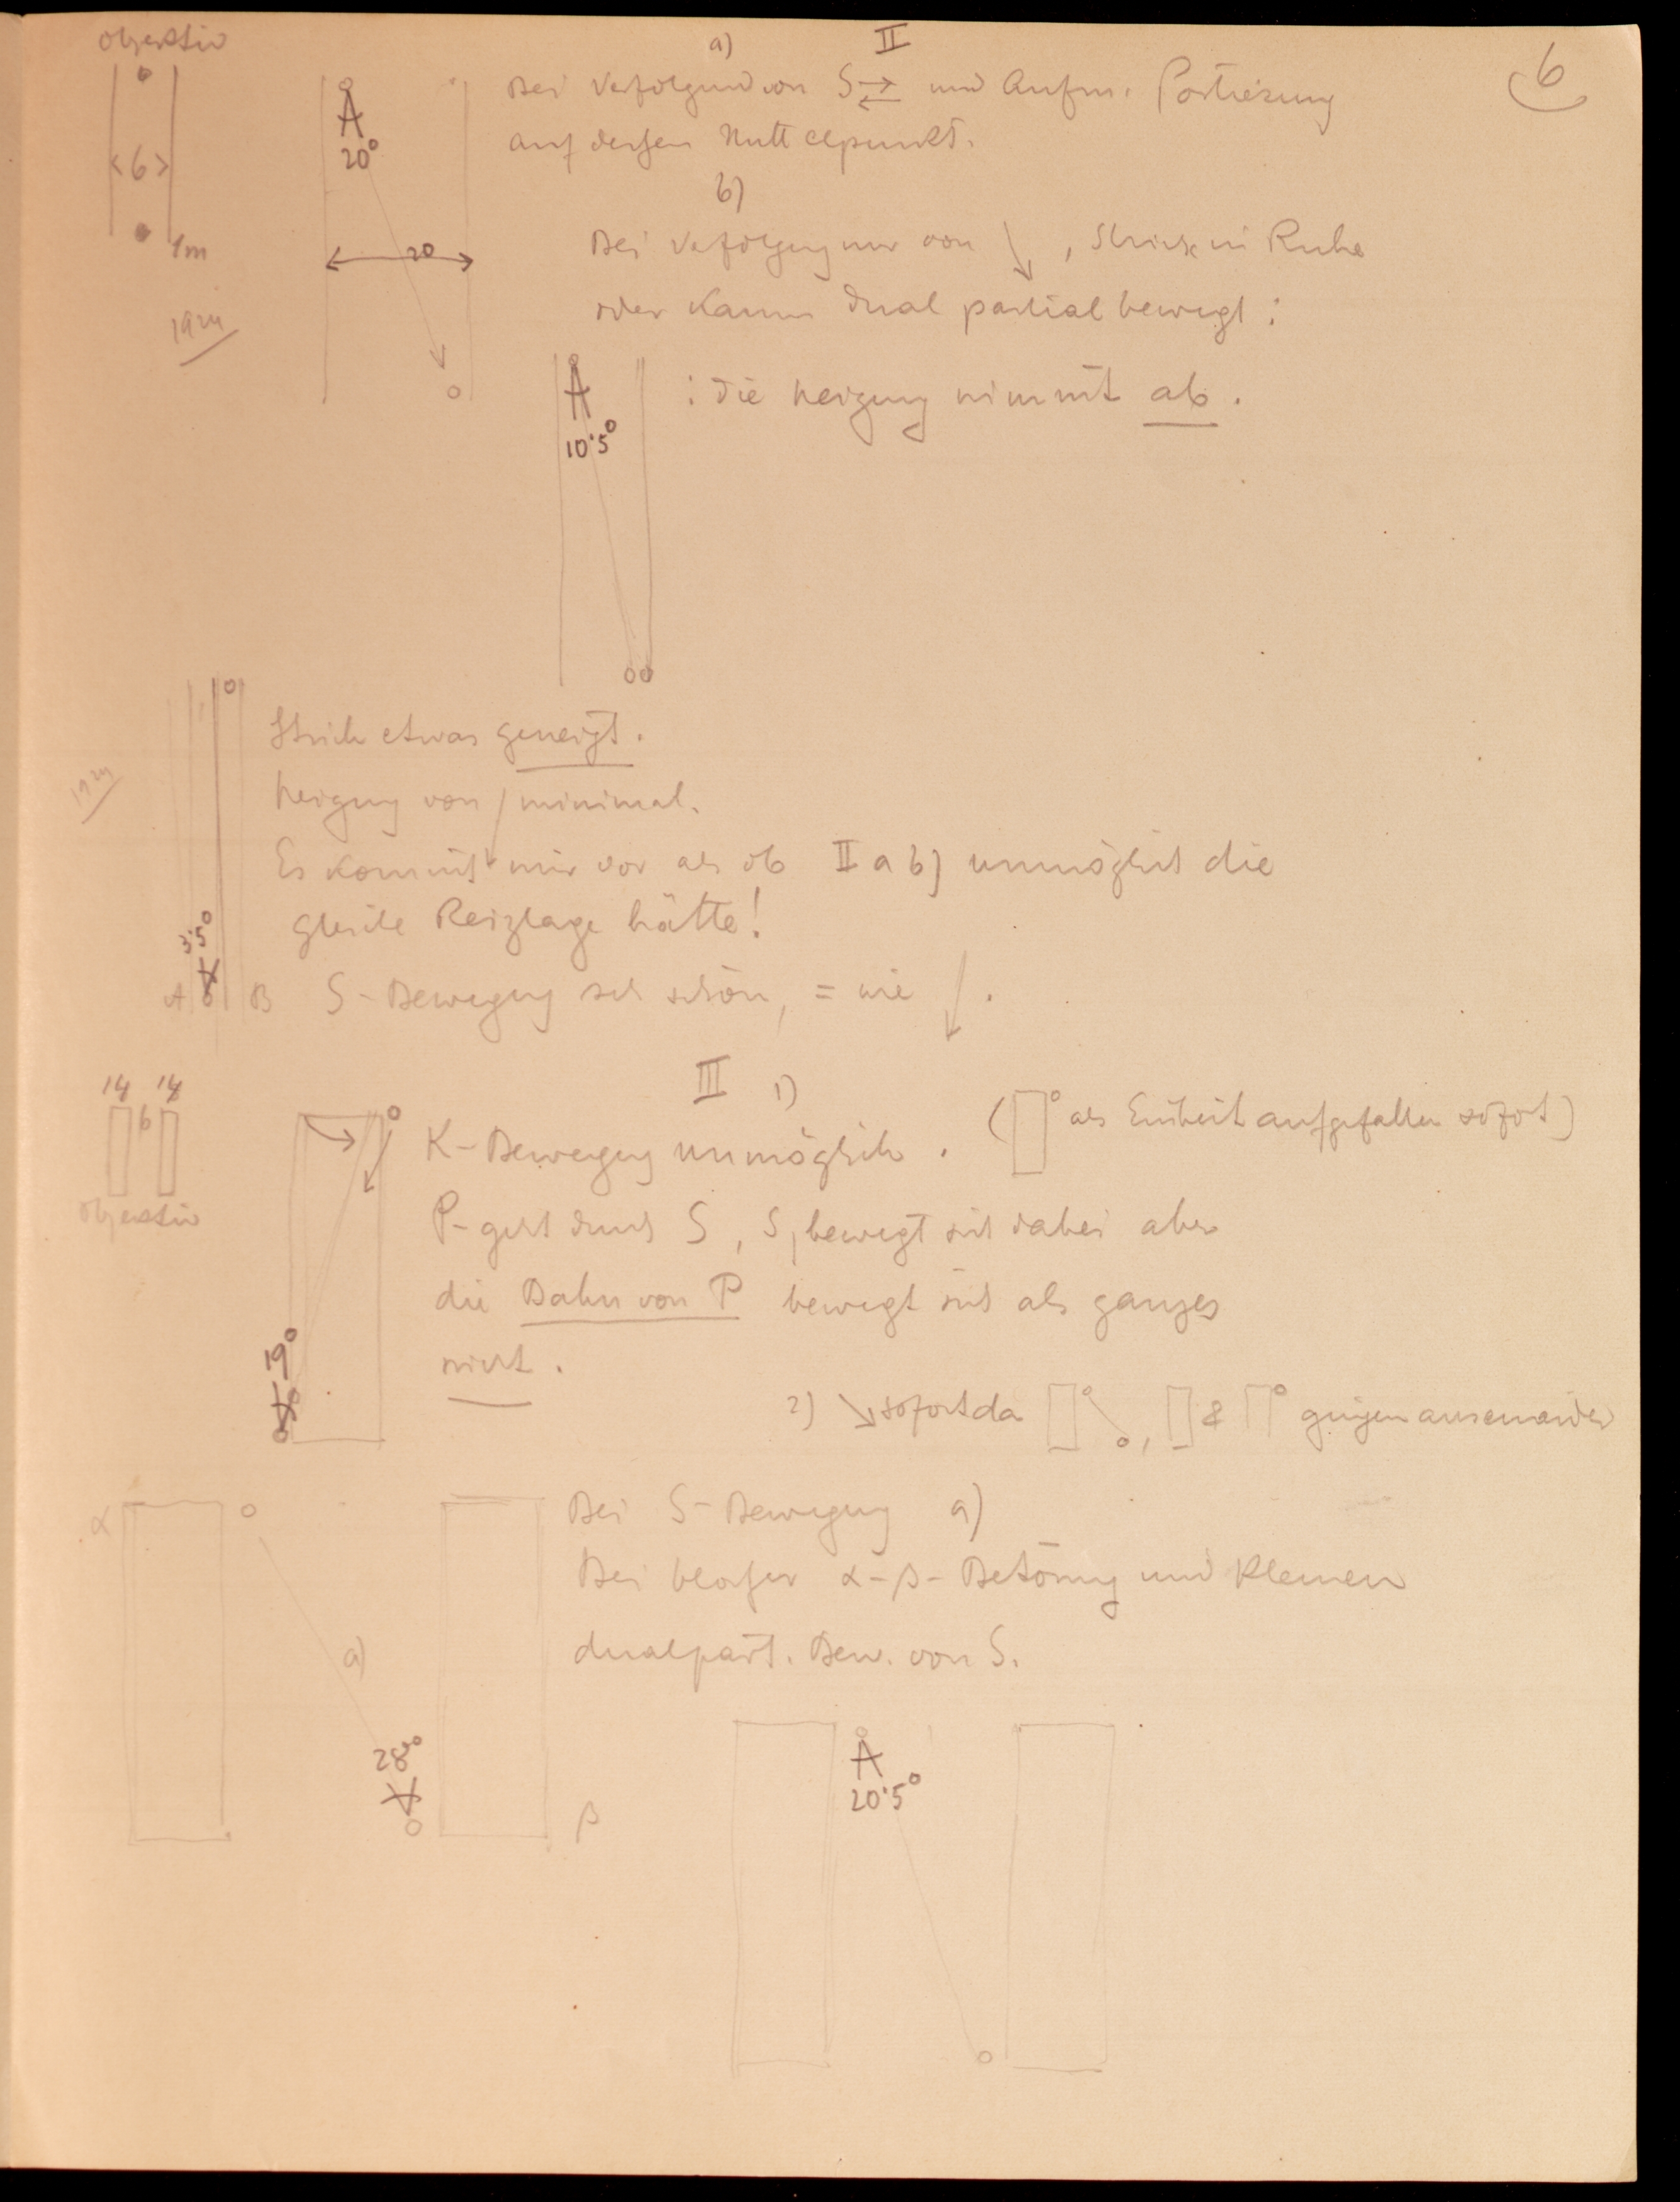 6
objektiv
<6>
1m
A
20°
20
II
a)
Bei Verfolgung von S ⇄ und Aufm. Postierung
auf dessen Mittelpunkt.
b)
Bei Verfolgung nur von ↘, Striche in Ruhe
oder kaum dual partial bewegt:
: die Neigung nimmt ab.
A
10·5°
Strich etwas geneigt.
Neigung von ↓ minimal.
Es kommt mir vor als ob II a b) unmöglich die
gleiche Reizlage hätte!
S-Bewegung sehr schön, = wie ↓.
3·5°
A
B
III 1)
14 14
6
objektiv
K-Bewegung unmöglich. ( als Einheit aufgefallen sofort)
P- geht durch S, S, bewegt sich dabei aber
die Bahn von P bewegt sich als ganzes
nicht.
19°
2) ↘ sofort da , & gingen auseinander
α
a)
28°
β
Bei S-Bewegung a)
Bei blosser α-β-Betonung und kleinen
dualpart. Bew. von S.
A
20·5°